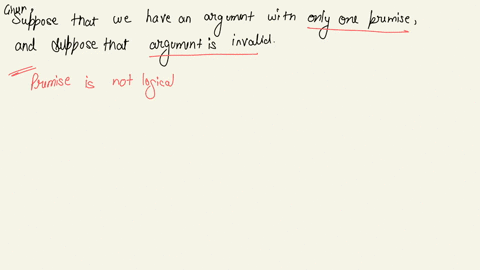 Given,
Suppose that we have an argument with only one premise,
and suppose that argument is invalid.
Premise is not logical